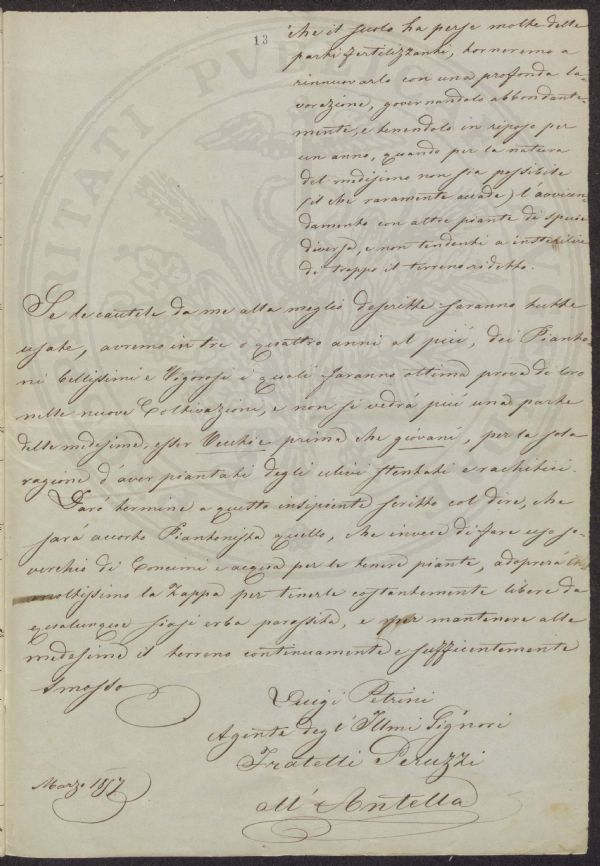 13
che il suolo ha perse molte delle
parti fertilizzanti, torneremo a
rinnuovarlo con una profonda la-
vorazione, governandolo abbondante-
mente, e tenendolo in riposo per
un anno, quando per la natura
del medesimo non sia possibile
(il che raramente accade) l'avvicen-
damento con altre piante di specie
diversa, e non tendenti a insterilire
di troppo il terreno ridetto.
Se le cautele da me alla meglio descritte saranno tutte
usate, avremo in tre o quattro anni al più, dei Pianto-
ni bellissimi e Vigorosi i quali faranno ottima prova di loro
nelle nuove Coltivazione, e non si vedrà più una parte
delle medesime, esser Vecchie prima che giovani, per la sola
ragione d'aver piantati degli ulivi stentati e rachitici.
Darò termine a questo insipiente scritto col dire, che
sarà accorto Piantonista quello, che invece di fare uso so-
verchio di Concimi e acqua per le tenere piante, adoprerà
moltissimo la Zappa per tenerle costantemente libere da
qualunque siasi erba parassita, e per mantenere alle
medesime il terreno continuamente e sufficentemente
smosso
Luigi Petrini
Agente degl'Illmi Signori
Fratelli Peruzzi
all'Antella
Marzo 1857